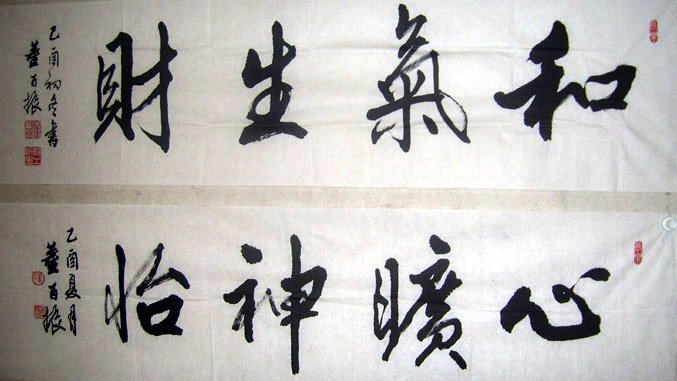 和氣生財
乙酉初冬書
董百振
心曠神怡
乙酉夏月
董百振